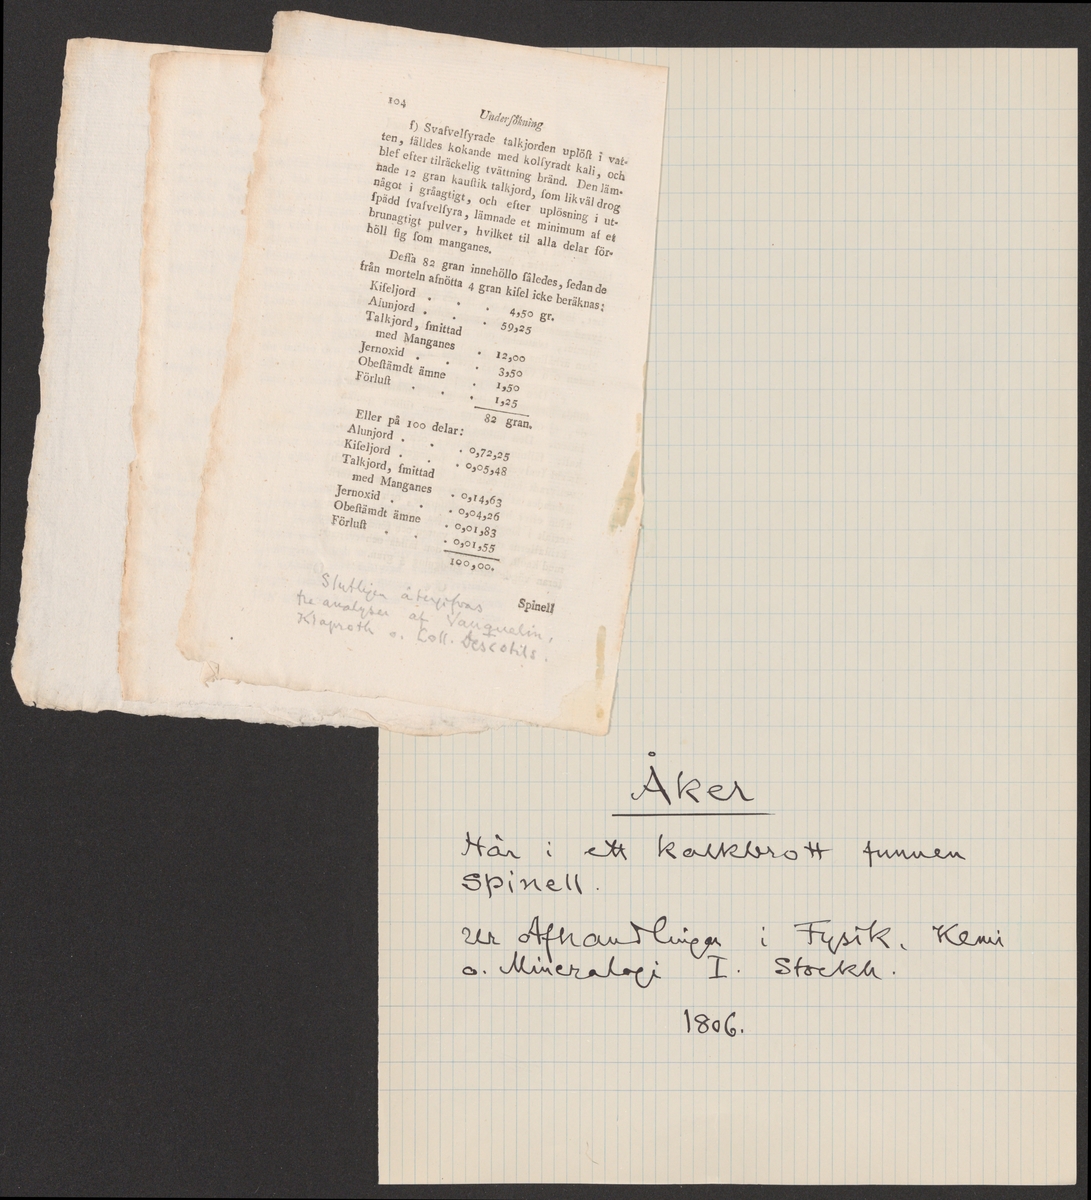 104 Underſökning
f) Svafvelſyrade talkjorden uplöſt i vat-
ten, fälldes kokande med kolſyradt kali, och
blef efter tilräckelig tvättning bränd. Den läm-
nade 12 gran kauſtik talkjord, ſom likväl drog
något i gråagtigt, och efter uplösning i ut-
ſpädd ſvafvelſyra, lämnade et minimum af et
brunagtigt pulver, hvilket til alla delar för-
höll ſig ſom manganes.
Deſſa 82 gran innehöllo ſåledes, ſedan de
från morteln afnötta 4 gran kiſel icke beräknas;
Kiſeljord . . . 4,50 gr.
Alunjord . . . 59,25
Talkjord, ſmittad
med Manganes . 12,00
Jernoxid . . . 3,50
Obeſtämdt ämne . 1,50
Förluſt . . . 1,25
82 gran.
Eller på 100 delar:
Alunjord . . . 0,72,25
Kiſeljord . . . 0,05,48
Talkjord, ſmittad
med Manganes . 0,14,63
Jernoxid . . . 0,04,26
Obeſtämdt ämne . 0,01,83
Förluſt . . . 0,01,55
100,00.
Spinell
Slutligen återgifvas
tre analyser af Vauquelin,
Klaproth o. Coll. Descotils.
Åker
Här i ett kalkbrott funnen
Spinell.
ur Afhandlingar i Fysik, Kemi
o. Mineralogi I. Stockh.
1806.